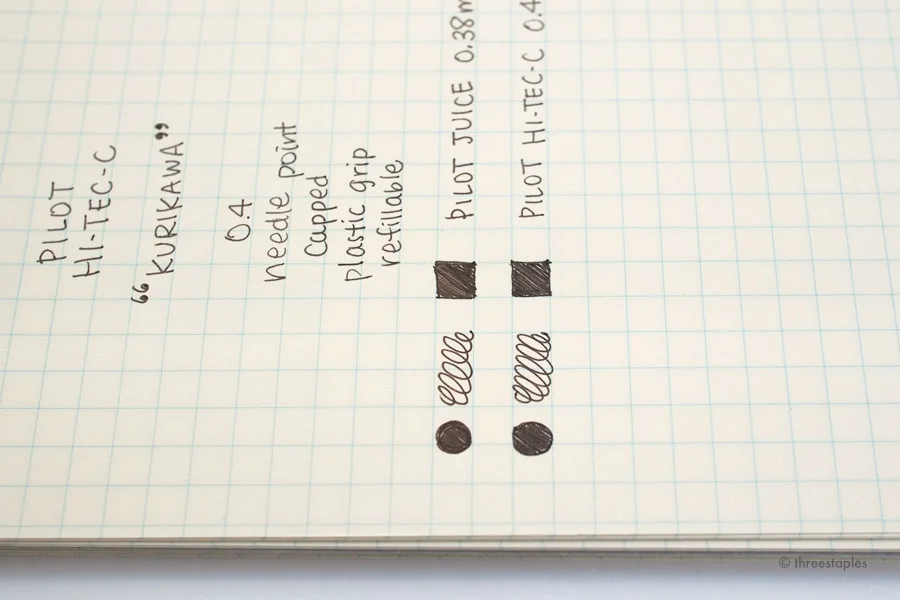 PILOT
HI-TEC-C
“KURIKAWA”
0.4
needle point
capped
plastic grip
refillable
PILOT JUICE 0.38m
PILOT HI-TEC-C 0.4
© threestaples